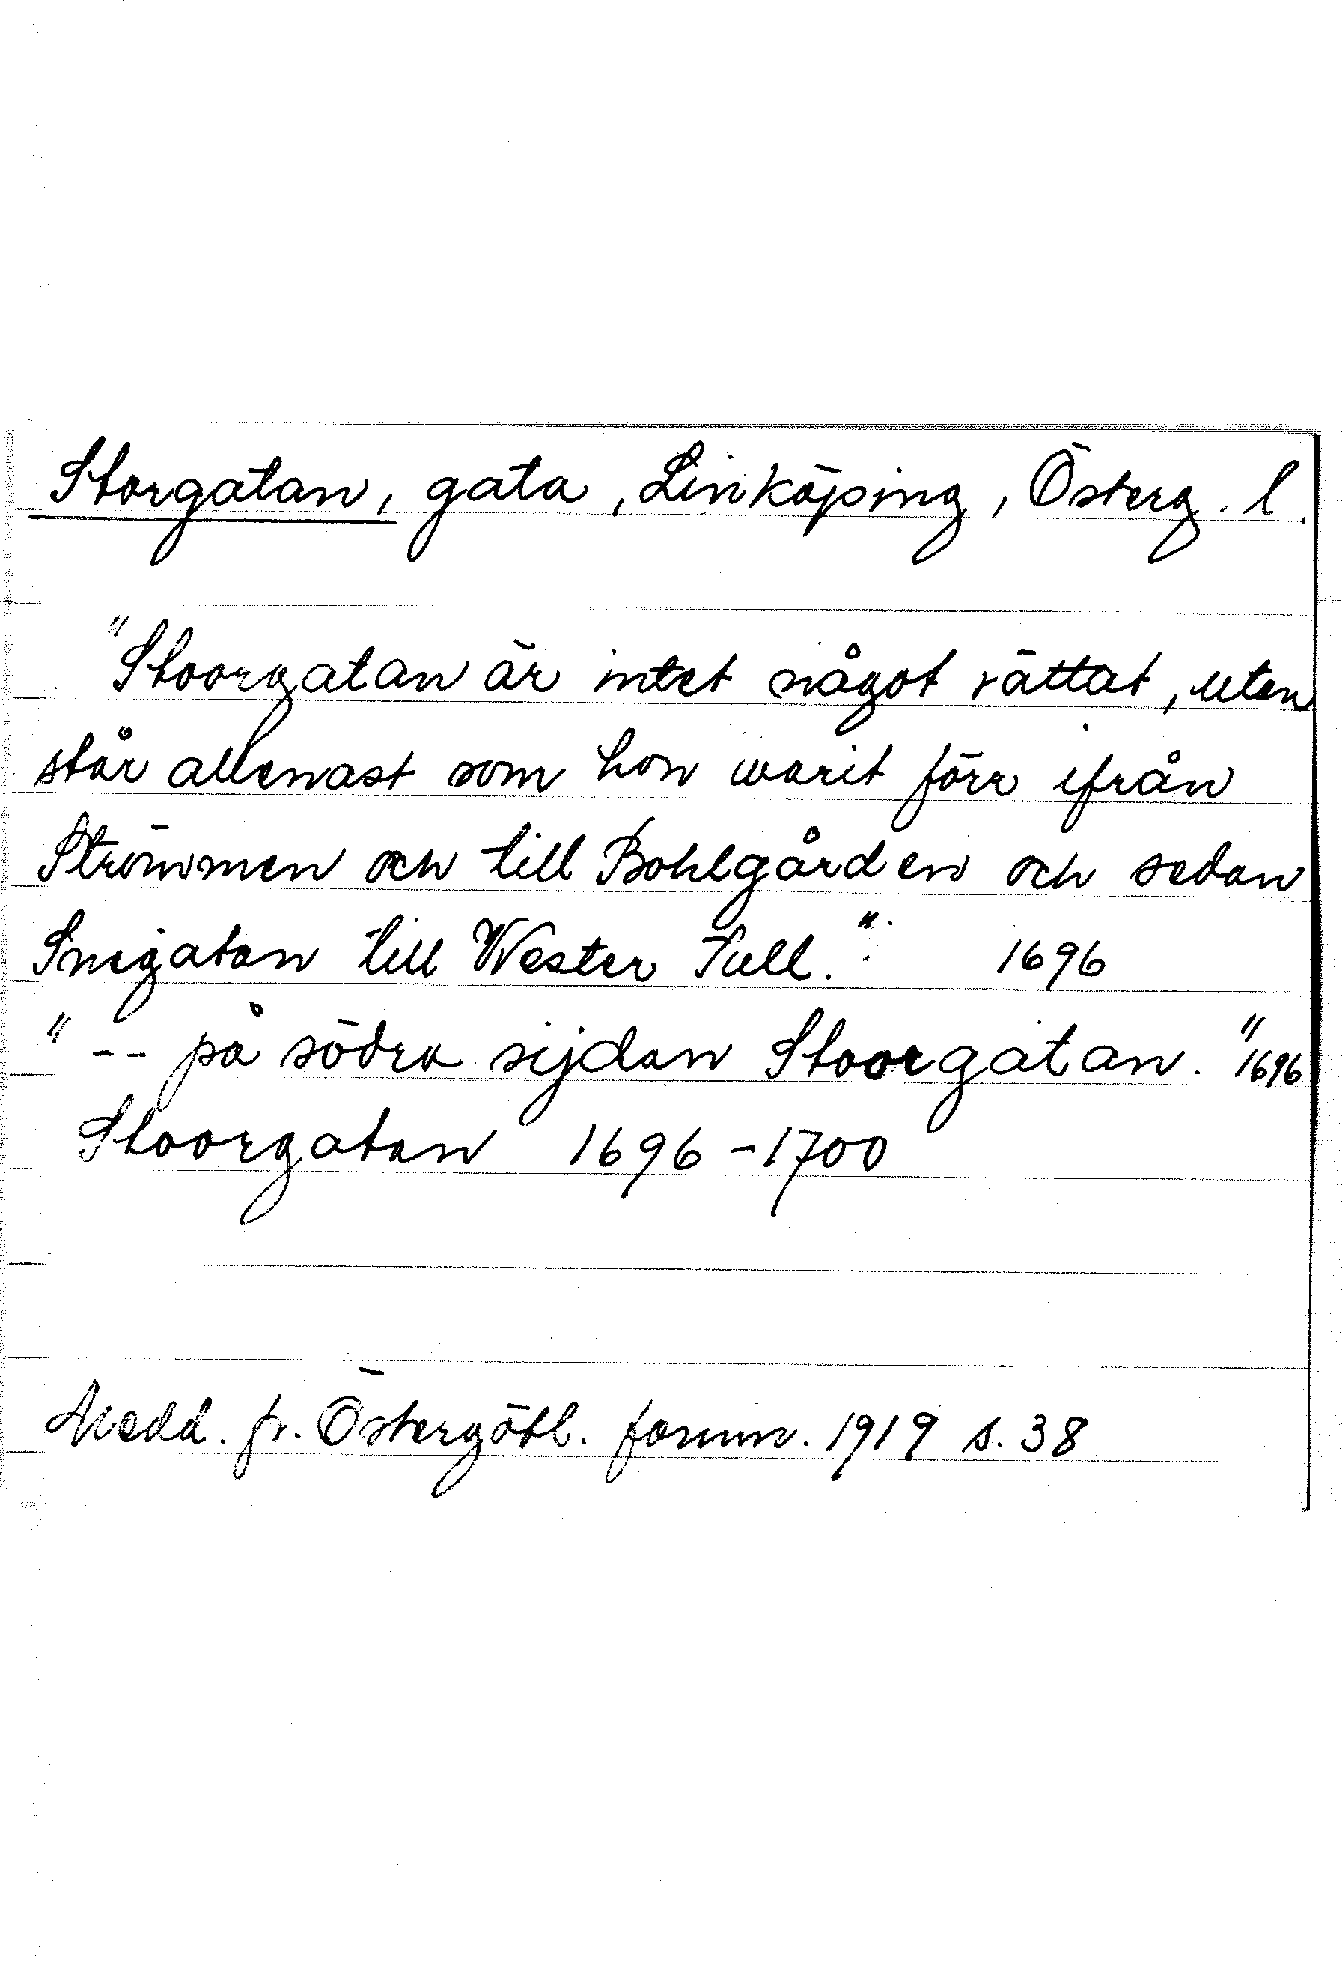 Storgatan, gata, Linköping, Österg. l.
"Stoorgatan är intet något rättat, uten
står allenast som hon warit förr ifrån
Strömmen och till Bohlgården och sedan
Snegatan till Wester Tull." 1696
" -- på södra sijdan Stoorgatan." 1696
Stoorgatan 1696-1700
Medd. fr. Östergötl. fornm. 1919 s. 38